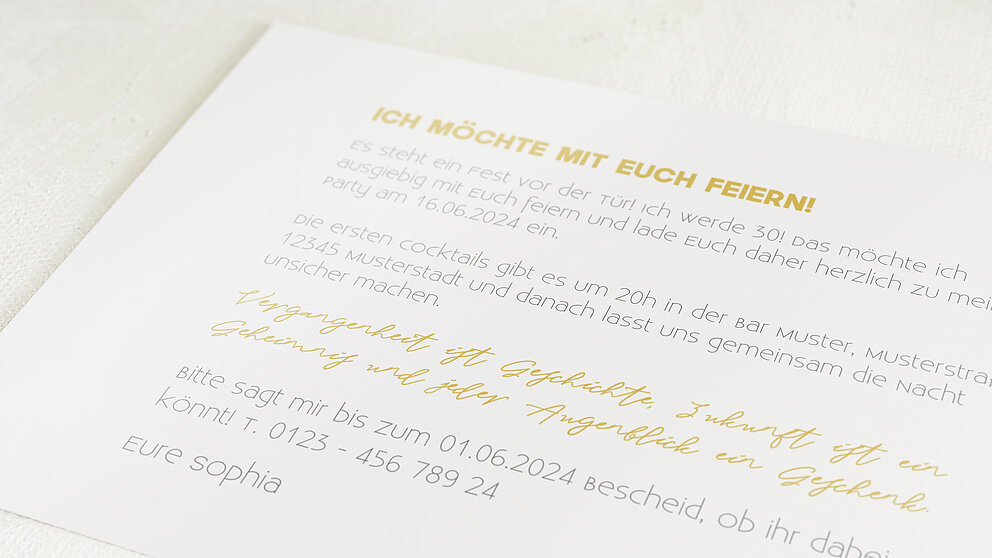 ICH MÖCHTE MIT EUCH FEIERN!
Es steht ein Fest vor der Tür! Ich werde 30! Das möchte ich
ausgiebig mit Euch feiern und lade Euch daher herzlich zu mei
Party am 16.06.2024 ein.
Die ersten Cocktails gibt es um 20h in der Bar Muster, Musterstra
12345 Musterstadt und danach lasst uns gemeinsam die Nacht
unsicher machen.
Vergangenheit ist Geschichte, Zukunft ist ein
Geheimnis und jeder Augenblick ein Geschenk.
Bitte sagt mir bis zum 01.06.2024 Bescheid, ob ihr dabei
könnt! T. 0123 - 456 789 24
Eure Sophia